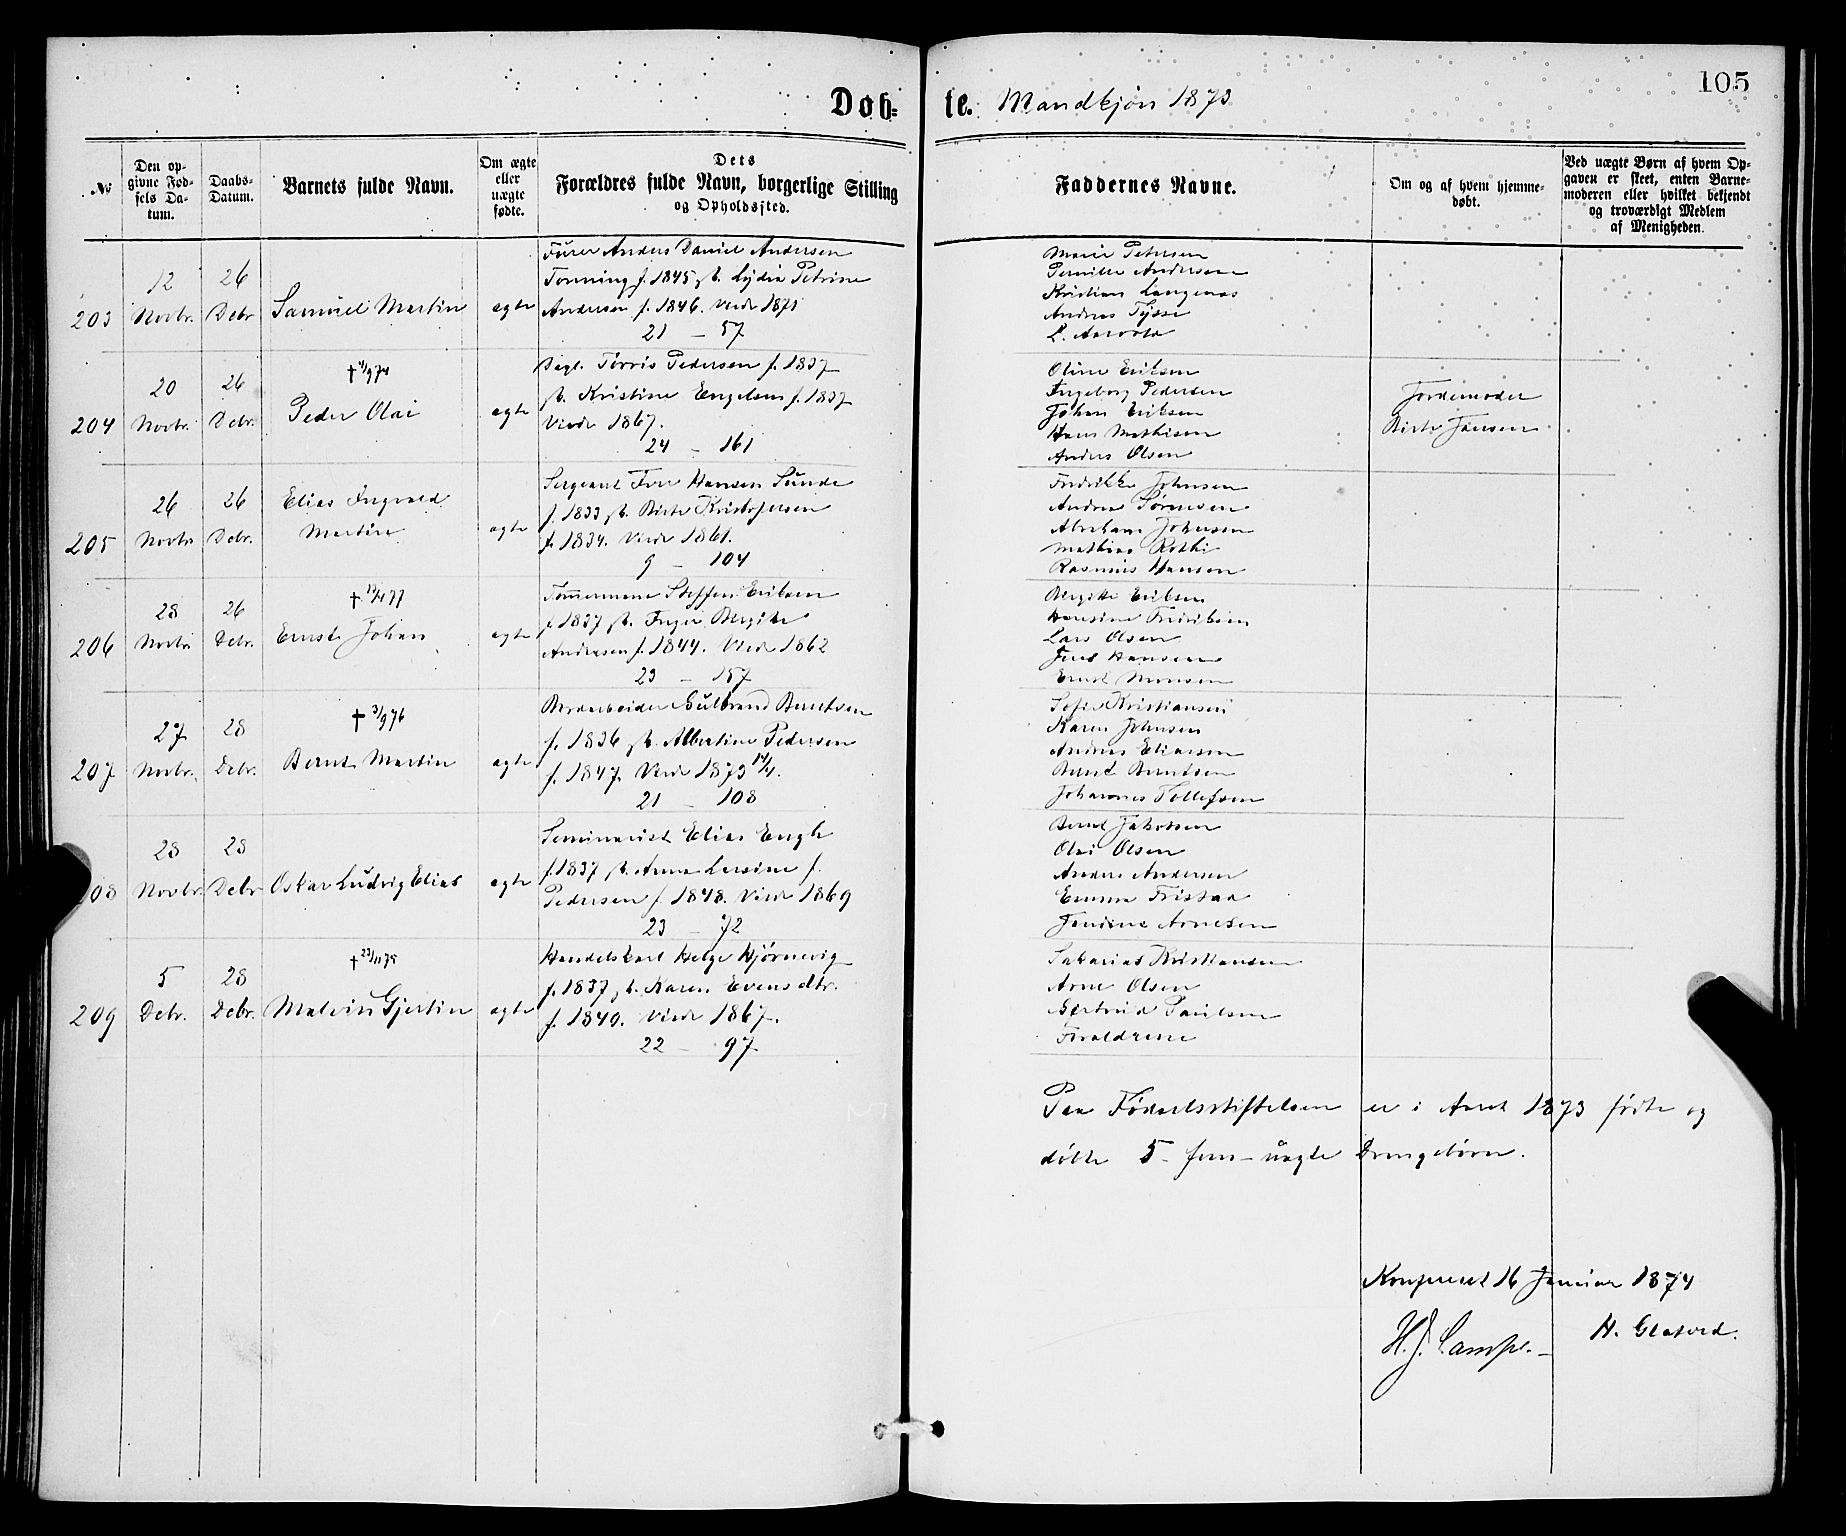 105
Døb- te. Mandkjøn 1873
№
Den op-
givne Fød-
sels Da-
tum.
Daabs-
Datum.
Barnets fulde Navn.
Om ægte
eller
uægte
fødte.
Dets
Forældres fulde Navn, borgerlige Stilling
og Opholdssted.
Faddernes Navne.
Om og af hvem hjemme-
døbt.
Ved uægte Børn af hvem Op-
gaven er skeet, enten Barne-
moderen eller hvilket bekjendt
og troværdigt Medlem
af Menigheden.
203
12
Novbr.
26
Debr
Samuel Martin
ægte
Furer Anders Daniel Andersen
Tønning f. 1845 Lydia Petrine
Andersen f. 1846. Viede 1871
21 - 57
Marie Petersen
Pernille Andersen
Kristian Langenæs
Andreas Tysse
204
20
Novbr.
26
Debr.
Peder Olai
ægte
Tørris Pedersen f. 1837
Kristine Engelsen f. 1837
Viede 1867.
24 - 161
Oline Eriksen
Ingeborg Pedersen
Johan Eriksen
Hans Mathisen
Anders Olsen
Jordemoder
Birte Jansen
205
26
Novbr
26
Debr.
Elias Ingvald
Martin
ægte
Sergeant Iver Hansen Sunde
f. 1833 Birte Kristofersen
f. 1834. Viede 1861.
9 - 104
Fredrikke Johnsen
Andrea Sørensen
Abraham Johnsen
Mathias Rothi
Rasmus Hansen
206
28
Novbr
26
Debr.
Ernst Johan
ægte
Tømmermand Steffen Eriksen
f. 1837 Inger Birgitte
Andersen f. 1844. Viede 1862
23 - 157
Birgitte Eriksen
Hansine Fredriksen
Lars Olsen
Jens Hansen
Ernst Monsen
207
27
Novbr.
28
Debr.
† 3/9 76
Bernt Martin
ægte
Bordarbeider Gulbrand Berntsen
f. 1836 Albertine Pedersen
f. 1847. Viede 1873 14/4.
21 - 108
Sofie Kristiansen
Karen Johnsen
Andreas Eliassen
Bernt Berntsen
Johannes Tollefsen
08
28
Novbr.
28
Debr
Oskar Ludvig Elias
ægte
Seminarist Elias Engh
f. 1837 Anna Larsine f.
Pedersen f. 1848. Viede 1869
23 - 72
Bernt Jakobsen
Olai Olsen
Anders Andersen
Emma Fristad
Jandine Arnesen
209
5
Debr.
28
Debr.
Malvin Gjertin
ægte
Handelskarl Helge Hjørnevig
f. 1837 Karen Evensdtr.
f. 1840. Viede 1867.
22 - 97
Sakarias Kristiansen
Arne Olsen
Gertrud Paulsen
Forældrene
Paa Fødselsstiftelsen er i Aaret 1873 fødte og
døbte 5 - fem - uægte Drengebørn.
Konfereret 16 Januar 1874